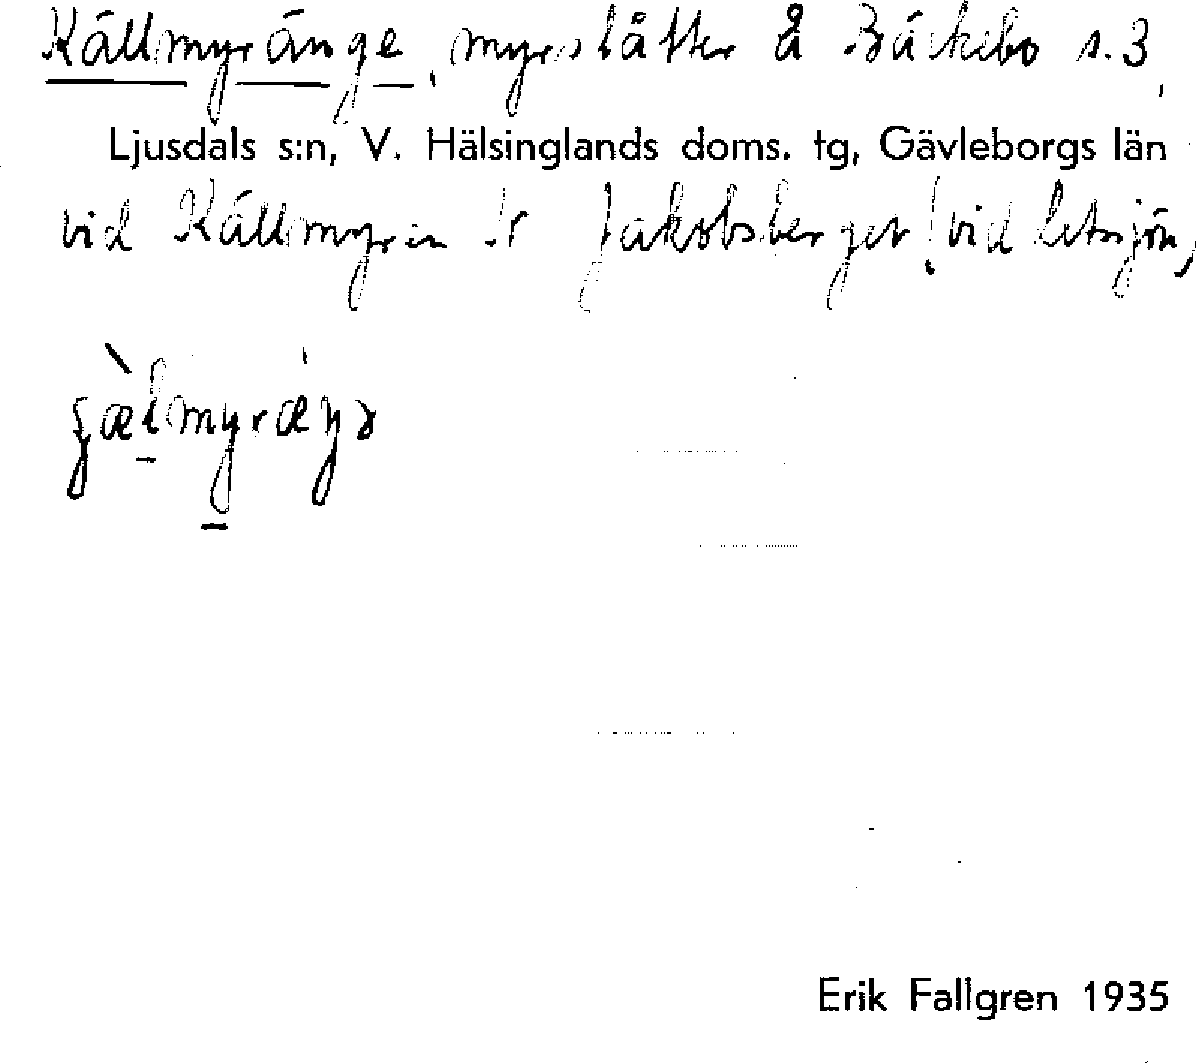 Källmyränge, myrslåtter å Bäckebo s. 3,
Ljusdals s:n, V. Hälsinglands doms. tg, Gävleborgs län
vid Källmyren Jakobsberget vid Letsjön,
Erik Fallgren 1935